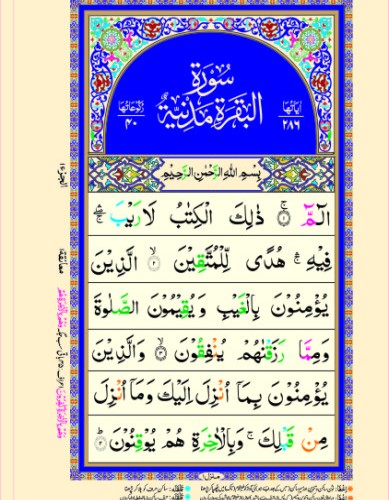 سُورَةُ
الْبَقَرَةِ مَدَنِيَّةٌ
اٰيَاتُهَا
٢٨٦
رُكُوْعَاتُهَا
٤٠
بِسْمِ اللهِ الرَّحْمٰنِ الرَّحِيْمِ
الٓمّٓ ۚ﴿۱﴾ ذٰلِكَ الْكِتٰبُ لَا رَيْبَ ۛۖۚ
فِيْهِ ۛۚ هُدًى لِّلْمُتَّقِيْنَ ۙ﴿۲﴾ الَّذِيْنَ
يُؤْمِنُوْنَ بِالْغَيْبِ وَيُقِيْمُوْنَ الصَّلٰوةَ
وَمِمَّا رَزَقْنٰهُمْ يُنْفِقُوْنَ ۙ﴿۳﴾ وَالَّذِيْنَ
يُؤْمِنُوْنَ بِمَاۤ اُنْزِلَ اِلَيْكَ وَمَاۤ اُنْزِلَ
مِنْ قَبْلِكَ ۚ وَبِالْاٰخِرَةِ هُمْ يُوْقِنُوْنَ ؕ﴿۴﴾